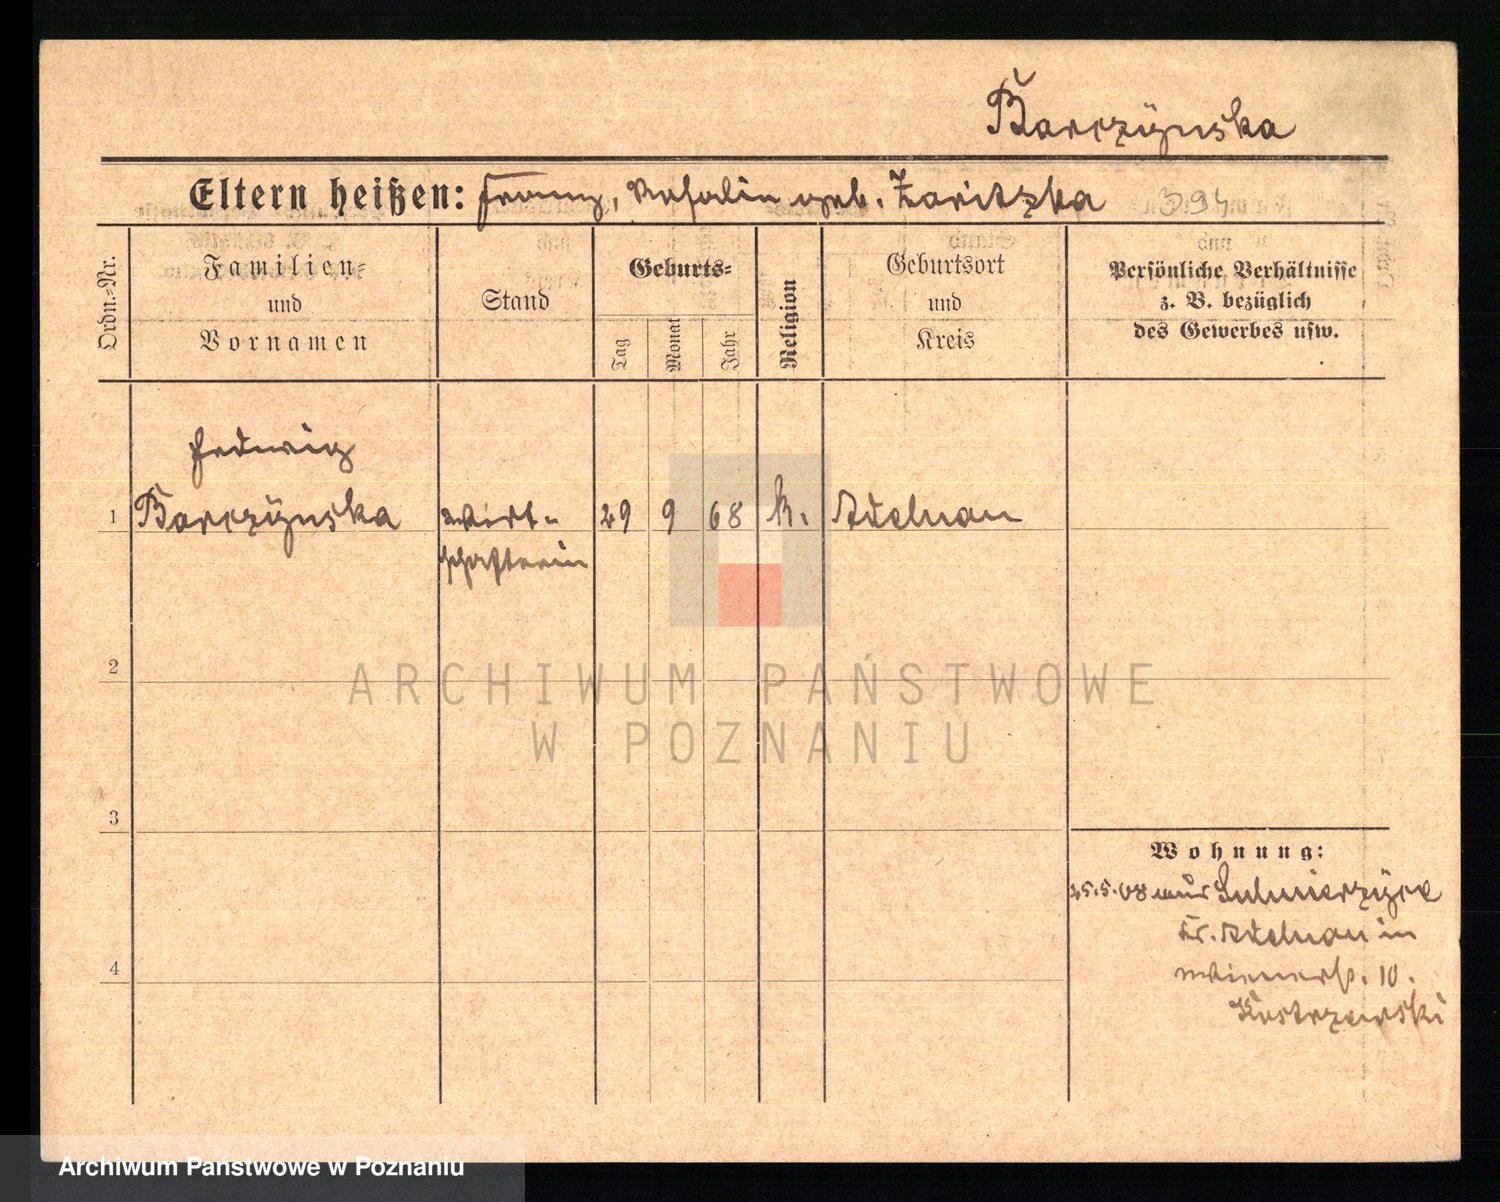 Barczynska
Eltern heißen: Franz, Rosalie geb. Zaritzka
394
Ordn.-Nr.
Familien-
und
Vornamen
Stand
Geburts-
Tag
Monat
Jahr
Religion
Geburtsort
und
Kreis
Persönliche Verhältnisse
z. B. bezüglich
des Gewerbes usw.
Hedwig
1 Barczynska Wirt- 29 9 68 k. Adelnau
schafterin
2
3
4
Wohnung:
25.5.08 aus Sulmierzyce
Kr. Adelnau in
Wienerst. 10.
Kostrzewski
ARCHIWUM PAŃSTWOWE
W POZNANIU
Archiwum Państwowe w Poznaniu